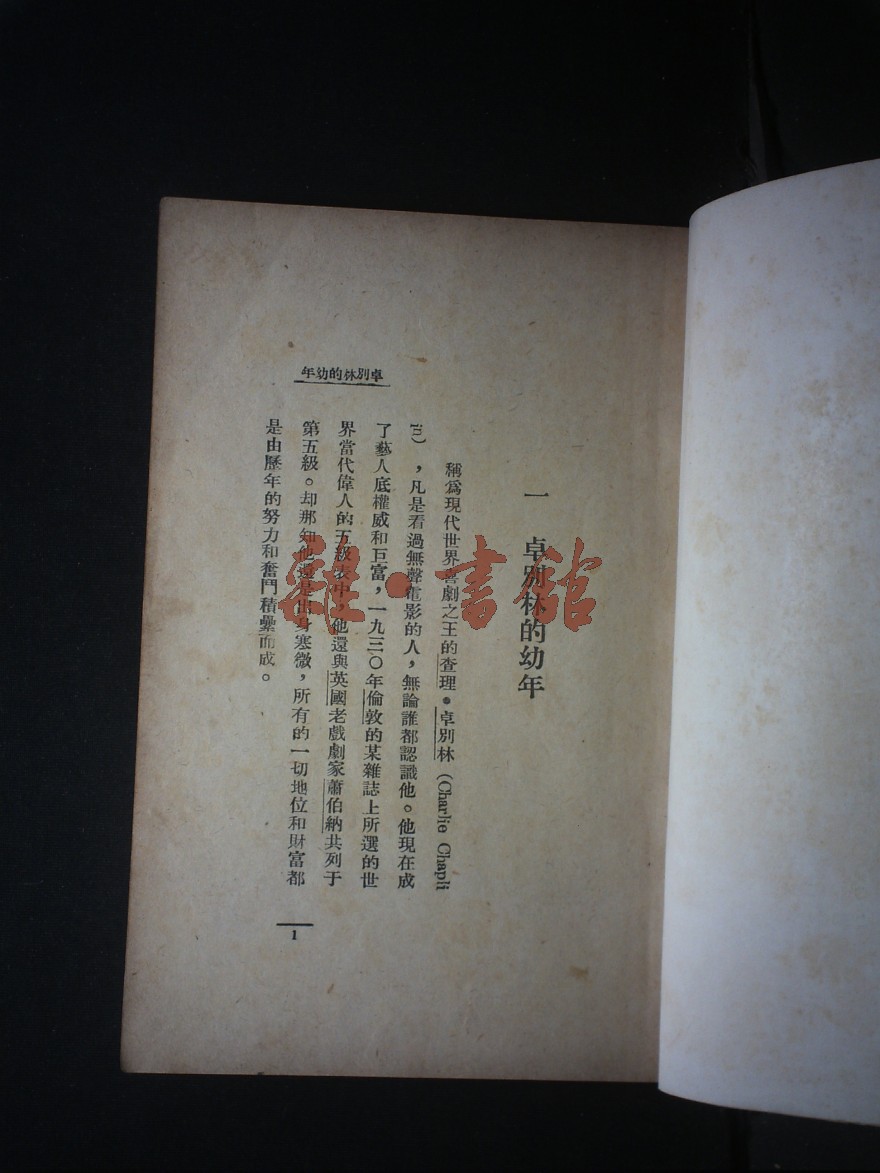 卓別林的幼年
一 卓別林的幼年
稱爲現代世界喜劇之王的查理•卓別林 (Charlie Chapl
in)，凡是看過無聲電影的人，無論誰都認識他。他現在成
了藝人底權威和巨富，一九三〇年倫敦的某雜誌上所選的世
界當代偉人的五級表中，他還與英國老戲劇家蕭伯納共列于
第五級。却那知他還是出身寒微，所有的一切地位和財富都
是由歷年的努力和奮鬥積纍而成。
1
雜•書館